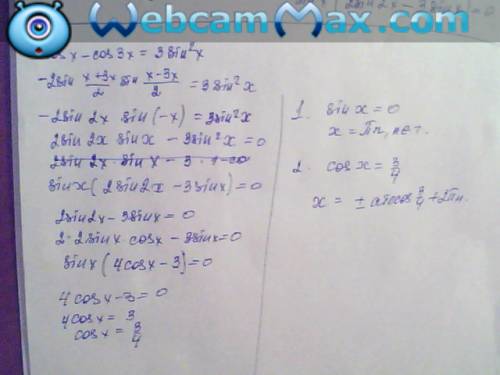 WebcamMax.com
cosx - cos3x = 3sin²x
-2sin (x+3x)/2 sin (x-3x)/2 = 3sin²x
-2sin 2x sin(-x) = 3sin²x
2sin 2x sinx - 3sin²x = 0
sinx(2sin2x - 3sinx) = 0
2sin2x - 3sinx = 0
2·2sinx cosx - 3sinx = 0
sinx(4cosx - 3) = 0
4cosx - 3 = 0
4cosx = 3
cosx = 3/4
1. sinx = 0
x = πn, n∈Z.
2. cosx = 3/4
x = ± arccos 3/4 + 2πn.